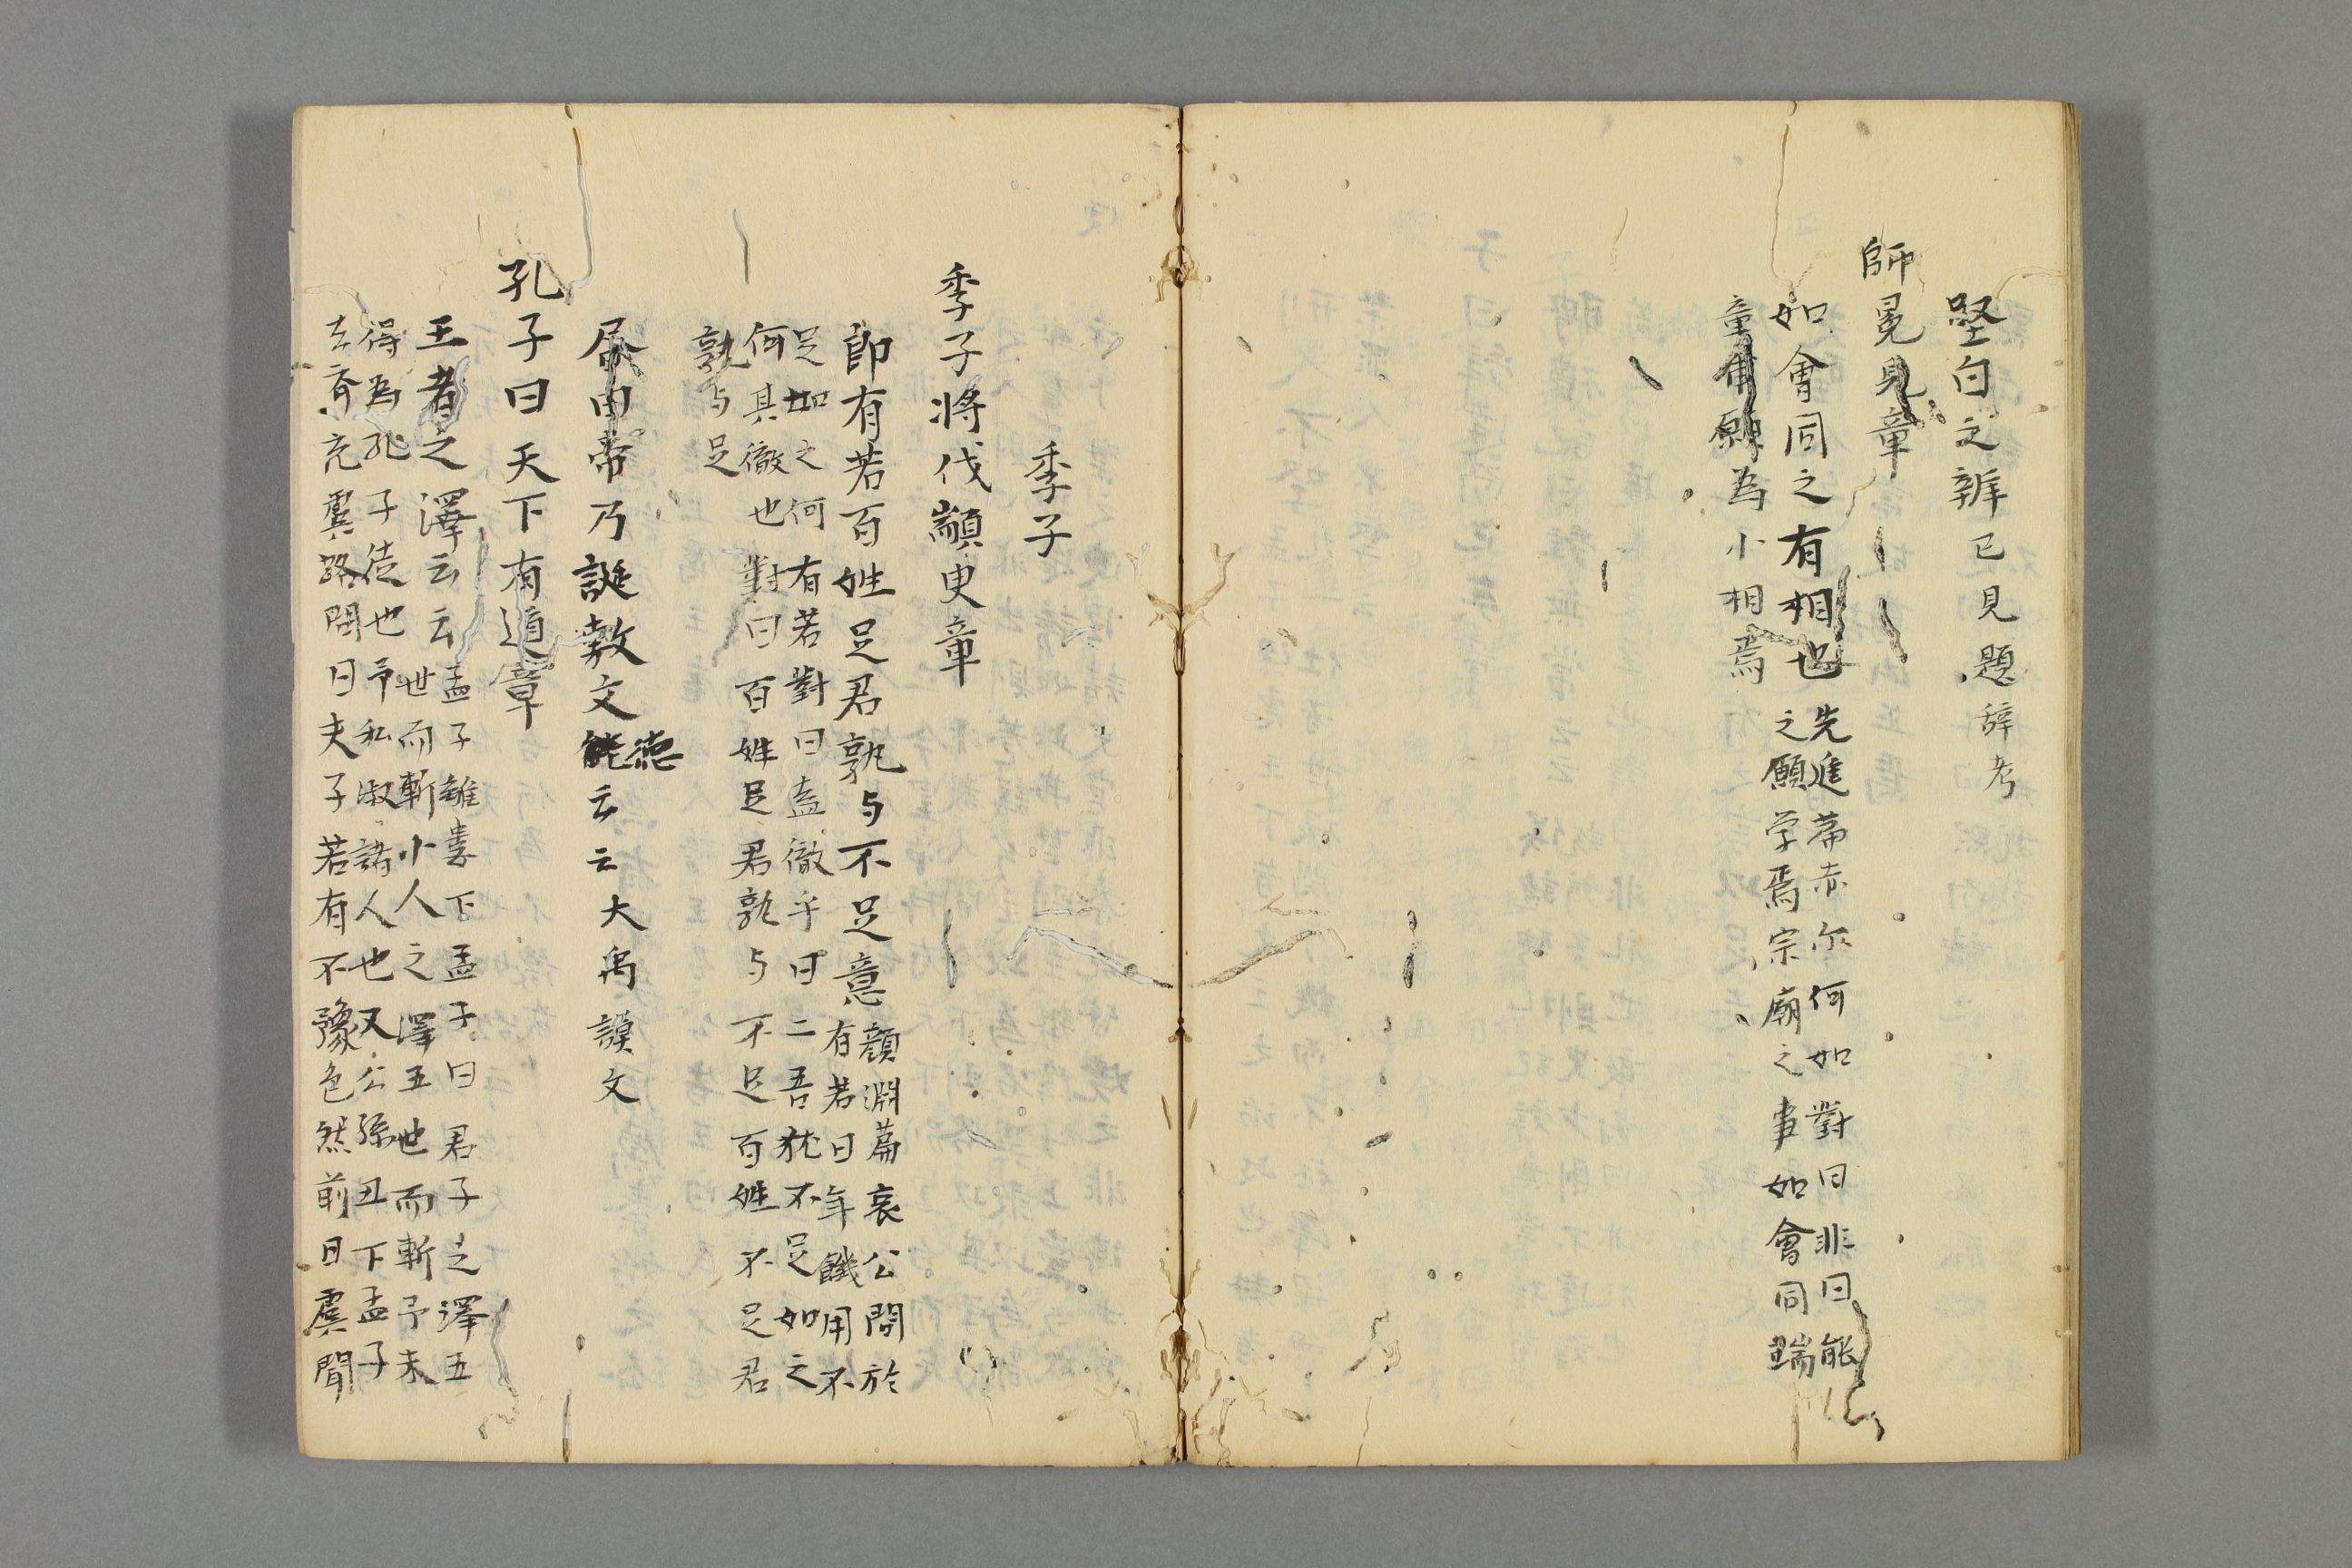 堅白之辨已見題辞考
師冕見章
如會同之有相也先進篇赤尓何如對曰非曰能
之願学焉宗廟之事如會同端
章甫願為小相焉
季子
季子將伐顓臾章
即有若百姓足君孰与不足意顔淵篇哀公問於
有若曰年饑用不
足如之何有若對曰盍徹乎曰二吾猶不足如之
何其徹也對曰百姓足君孰与不足百姓不足君
孰与足
帝乃誕敷文德云云大禹謨文
孔子曰天下有道章
王者之澤云云孟子離婁下孟子曰君子之澤五
世而斬小人之澤五世而斬予未
得為孔子徒也予私淑諸人也又公孫丑下孟子
去斉充虞路問曰夫子若有不豫色然前日虞聞